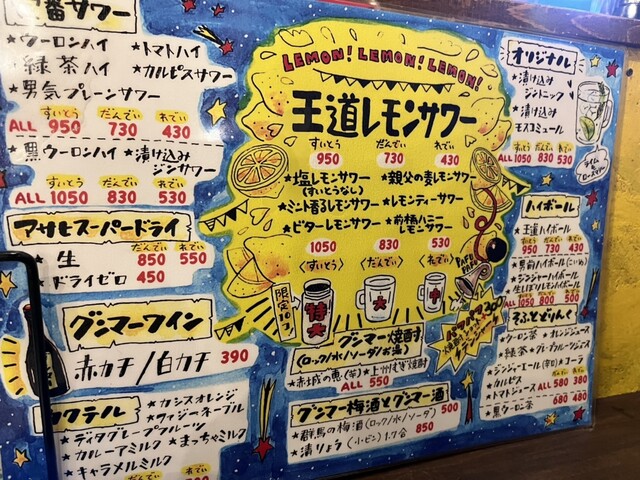 番サワー
★ウーロンハイ ★トマトハイ
★緑茶ハイ ★カルピスサワー
★男気プレーンサワー
すいとう だんでぃ れでぃ
ALL 950 730 430
★黒ウーロンハイ ★漬け込みジンサワー
すいとう だんでぃ れでぃ
ALL 1050 830 530
アサヒスーパードライ
だんでぃ れでぃ
★生 850 550
★ドライゼロ 450
グンマーワイン
赤カチ/白カチ 390
カクテル
★カシスオレンジ
★ファジーネーブル
★ディタグレープフルーツ
★カルーアミルク ★まっちゃミルク
★キャラメルミルク
LEMON! LEMON! LEMON!
王道レモンサワー
すいとう だんでぃ れでぃ
950 730 430
★塩レモンサワー(すいとうなし) ★親父の麦レモンサワー
★ミント香るレモンサワー ★レモンティーサワー
★ビターレモンサワー ★前橋ハニーレモンサワー
1050 830 530
〈すいとう〉 〈だんでぃ〉 〈れでぃ〉
限定10コ
特大 大 中
グンマー焼酎
(ロック/水/ソーダ/お湯)
★赤城の恵(芋) ★上州すぎ焼酎
ALL 550
グンマー梅酒とグンマー酒
★群馬の梅酒(ロック/水/ソーダ) 500
★漬りょう(小ビン)1.7合 850
オリジナル
★漬け込みジントニック
★漬け込みモスコミュール
すいとう だんでぃ れでぃ
ALL 1050 830 530
ハイボール
★王道ハイボール
すいとう だんでぃ れでぃ
950 730 430
★男前ハイボール(こいめ)
★ジンジャーハイボール
★生しぼりレモンハイボール
ALL 1050 800 500
そふとどりんく
★ウーロン茶 ★オレンジジュース
★緑茶 ★グレープフルーツジュース
★ジンジャーエール(辛口) ★コーラ
★カルピス
★トマトジュース ALL 580 380
★黒ウーロン茶 680 480